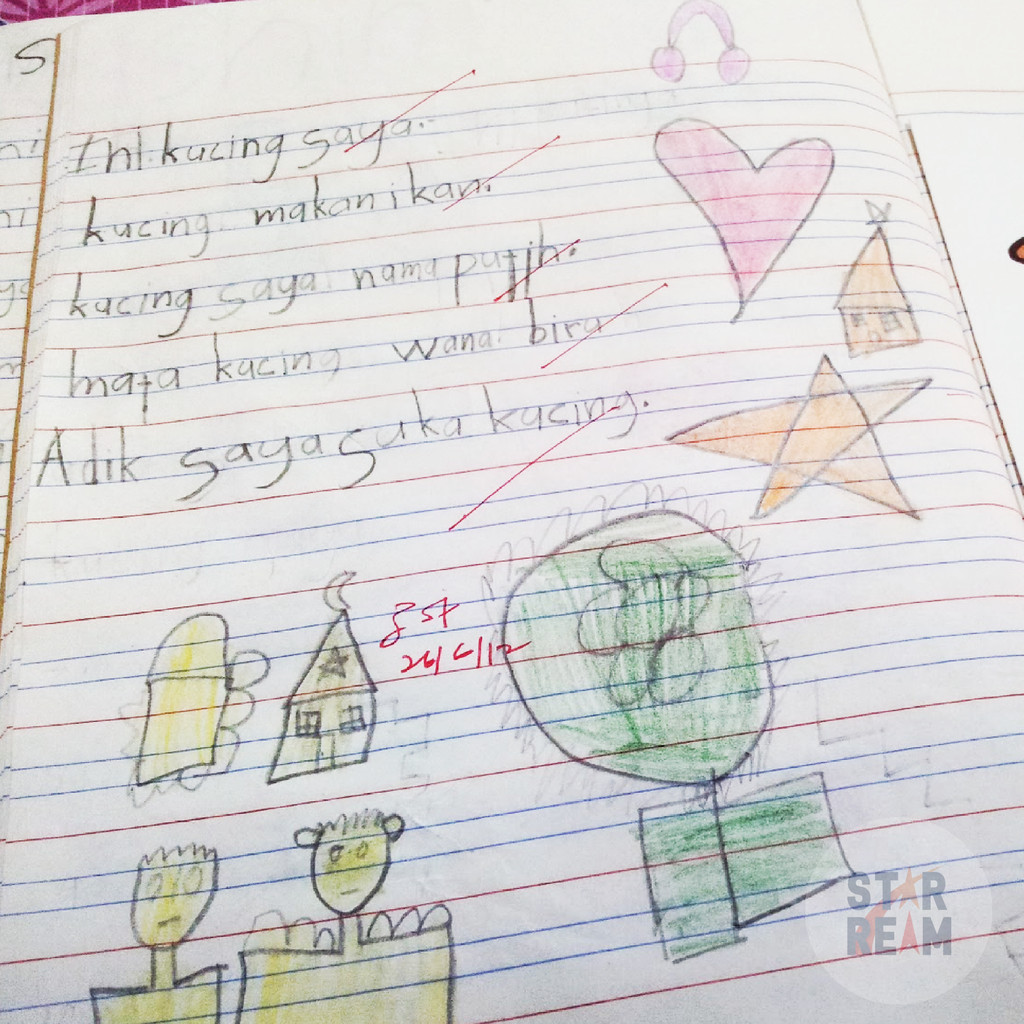 S
Ini kucing saya.
kucing makan ikan.
kucing saya nama putih.
mata kucing wana biru
Adik saya suka kucing.
26/6/12
STAR
REAM